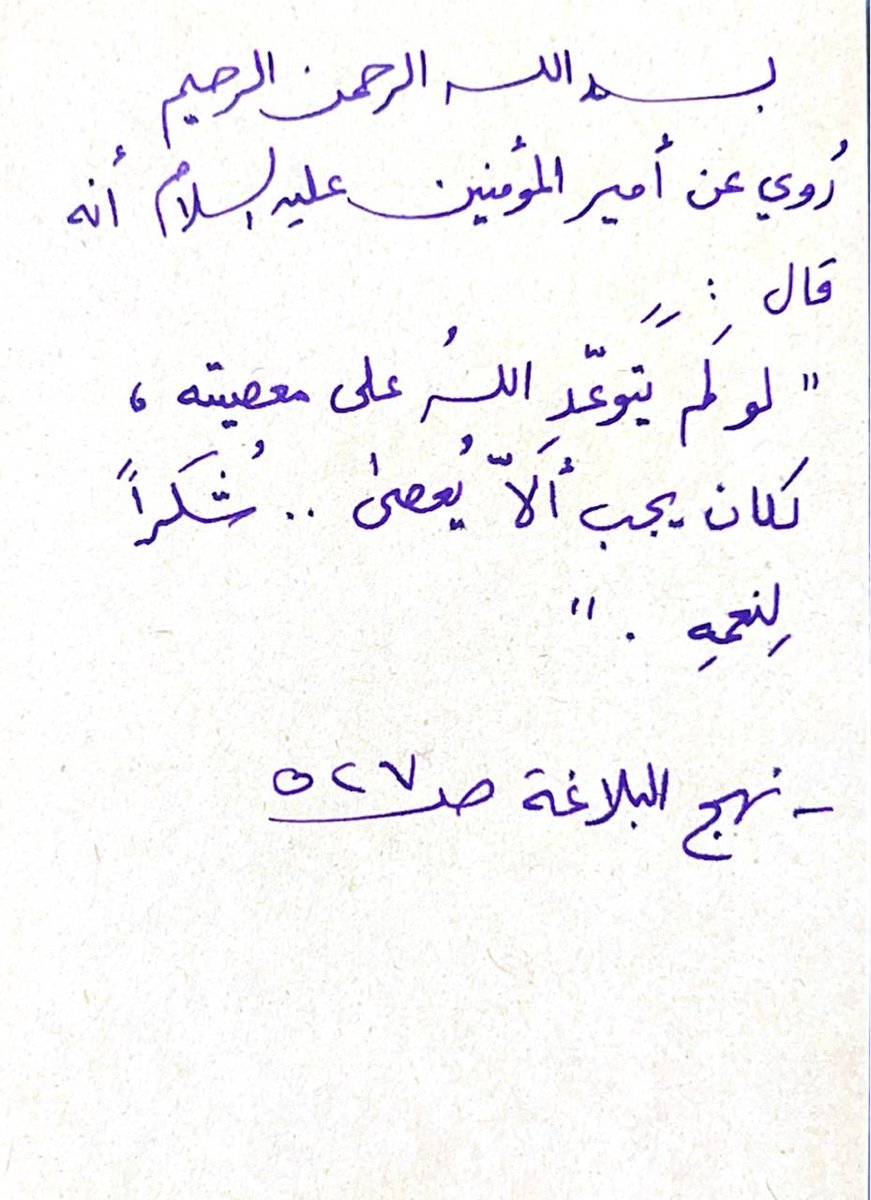 بسم الله الرحمن الرحيم
رُوي عن أمير المؤمنين عليه السلام أنه
قال :
" لو لَم يَتَوعّدِ اللهُ على معصيته ،
لكان يجب أَلاّ يُعصىٰ .. شُكَراً
لِنعمِهِ . "
- نهج البلاغة صـ ٥٢٧